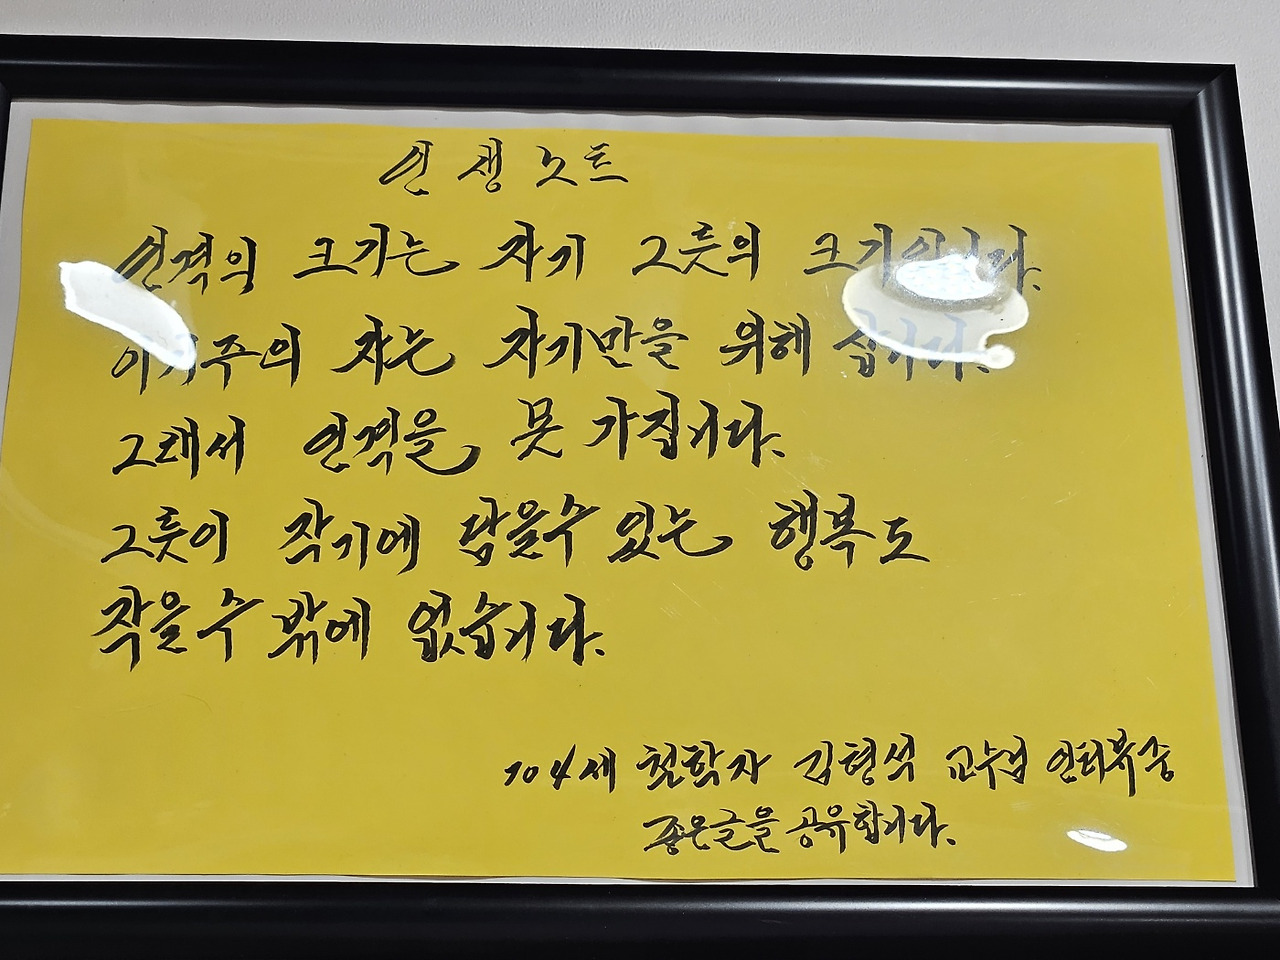 인생노트
인격의 크기는 자기 그릇의 크기입니다.
이기주의 자는 자기만을 위해 삽니다.
그래서 인격을 못 가집니다.
그릇이 작기에 담을수 있는 행복도
작을수 밖에 없습니다.
104세 철학자 김형석 교수님 인터뷰중
좋은글을 공유합니다.